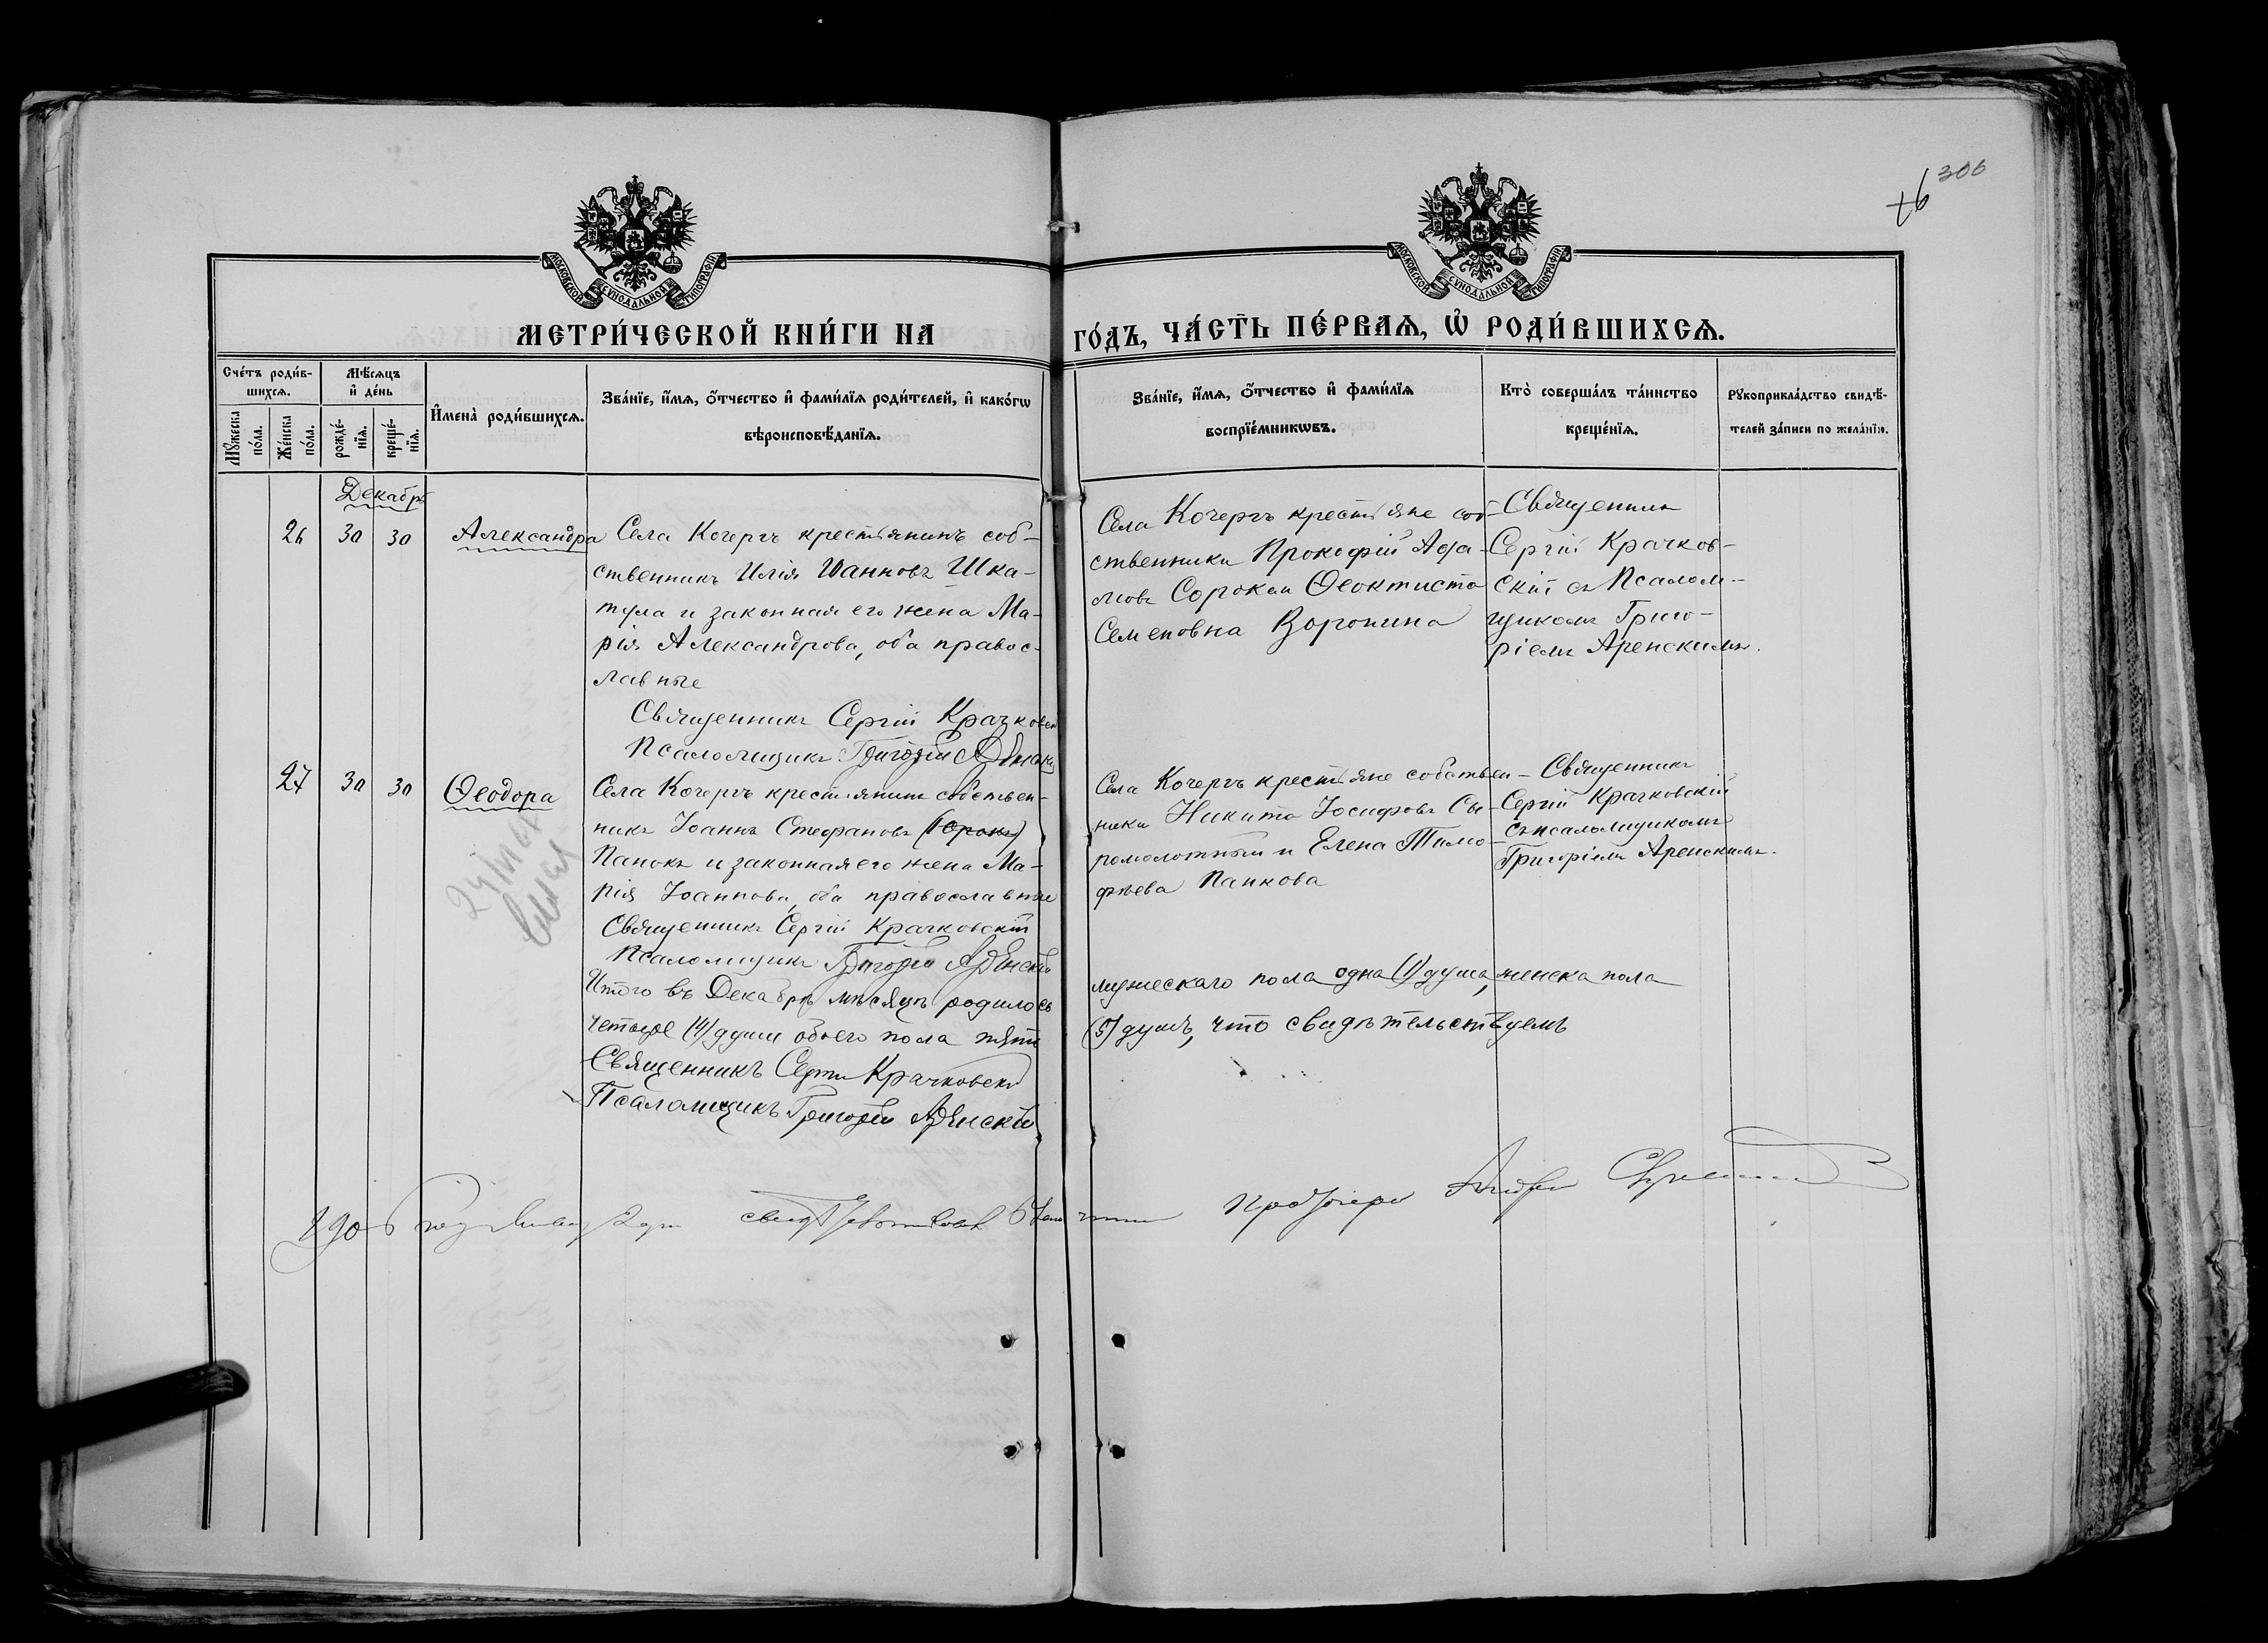 306
МОСКОВСКОЙ СУНОДАЛЬНОЙ ТИПОГРАФІИ
МОСКОВСКОЙ СУНОДАЛЬНОЙ ТИПОГРАФІИ
МЕТРИ́ЧЕСКОЙ КНИ́ГИ НА
ГО́ДЪ, ЧА́СТЬ ПЕ́РВАЯ, Ѡ РОДИ́ВШИХСЯ.
Сче́тъ роди́в-
шихся.
Мꙋжеска по́ла.
Же́нска по́ла.
Мѣ́сяцъ
и де́нь
рожде́-
нїя.
креще́-
нїя.
Имена̀ роди́вшихся.
Зва́нїе, и́мя, о́тчество и фами́лїя роди́телей, и како́гѡ
вѣроисповѣ́данїя.
Зва́нїе, и́мя, о́тчество и фами́лїя
воспрїе́мникѡвъ.
Кто̀ соверша́лъ та́инство
креще́нїя.
Рꙋкоприкла́дство свидѣ́-
телей за́писи по жела́нїю.
Декабрь
26 30 30 Александра
Села Кочергъ крестьянинъ соб-
ственникъ Илія Іоанновъ Шка-
тула и законная его жена Ма-
рія Александрова, оба правос-
лавные
Священникъ Сергій Крачковскій
Псаломщикъ Григорій Аренскій
Села Кочергъ крестьяне соб-
ственники Прокофій Ада-
мовъ Сорокан Ѳеоктиста
Семеновна Воронина
Священникъ
Сергій Крачков-
скій съ Псалом-
щикомъ Григо-
ріемъ Аренскимъ.
27 30 30 Ѳеодора
Села Кочергъ крестьянинъ собствен-
никъ Іоаннъ Стефановъ
Панокъ и законная его жена Ма-
рія Іоаннова, оба православные
Священникъ Сергій Крачковскій
Псаломщикъ Григорій Аренскій
Села Кочергъ крестьяне собствен-
ники Никита Іосифовъ Сы-
ромолотный и Елена Тимо-
фѣева Панкова
Священникъ
Сергій Крачковскій
съ псаломщикомъ
Григоріемъ Аренскимъ.
Итого въ Декабрѣ мѣсяцѣ родилось
мужескаго пола одна (1) душа, женска пола
четыре (4) души обоего пола пять
(5) душъ, что свидѣтельствуемъ
Священникъ Сергій Крачковскій
Псаломщикъ Григорій Аренскій